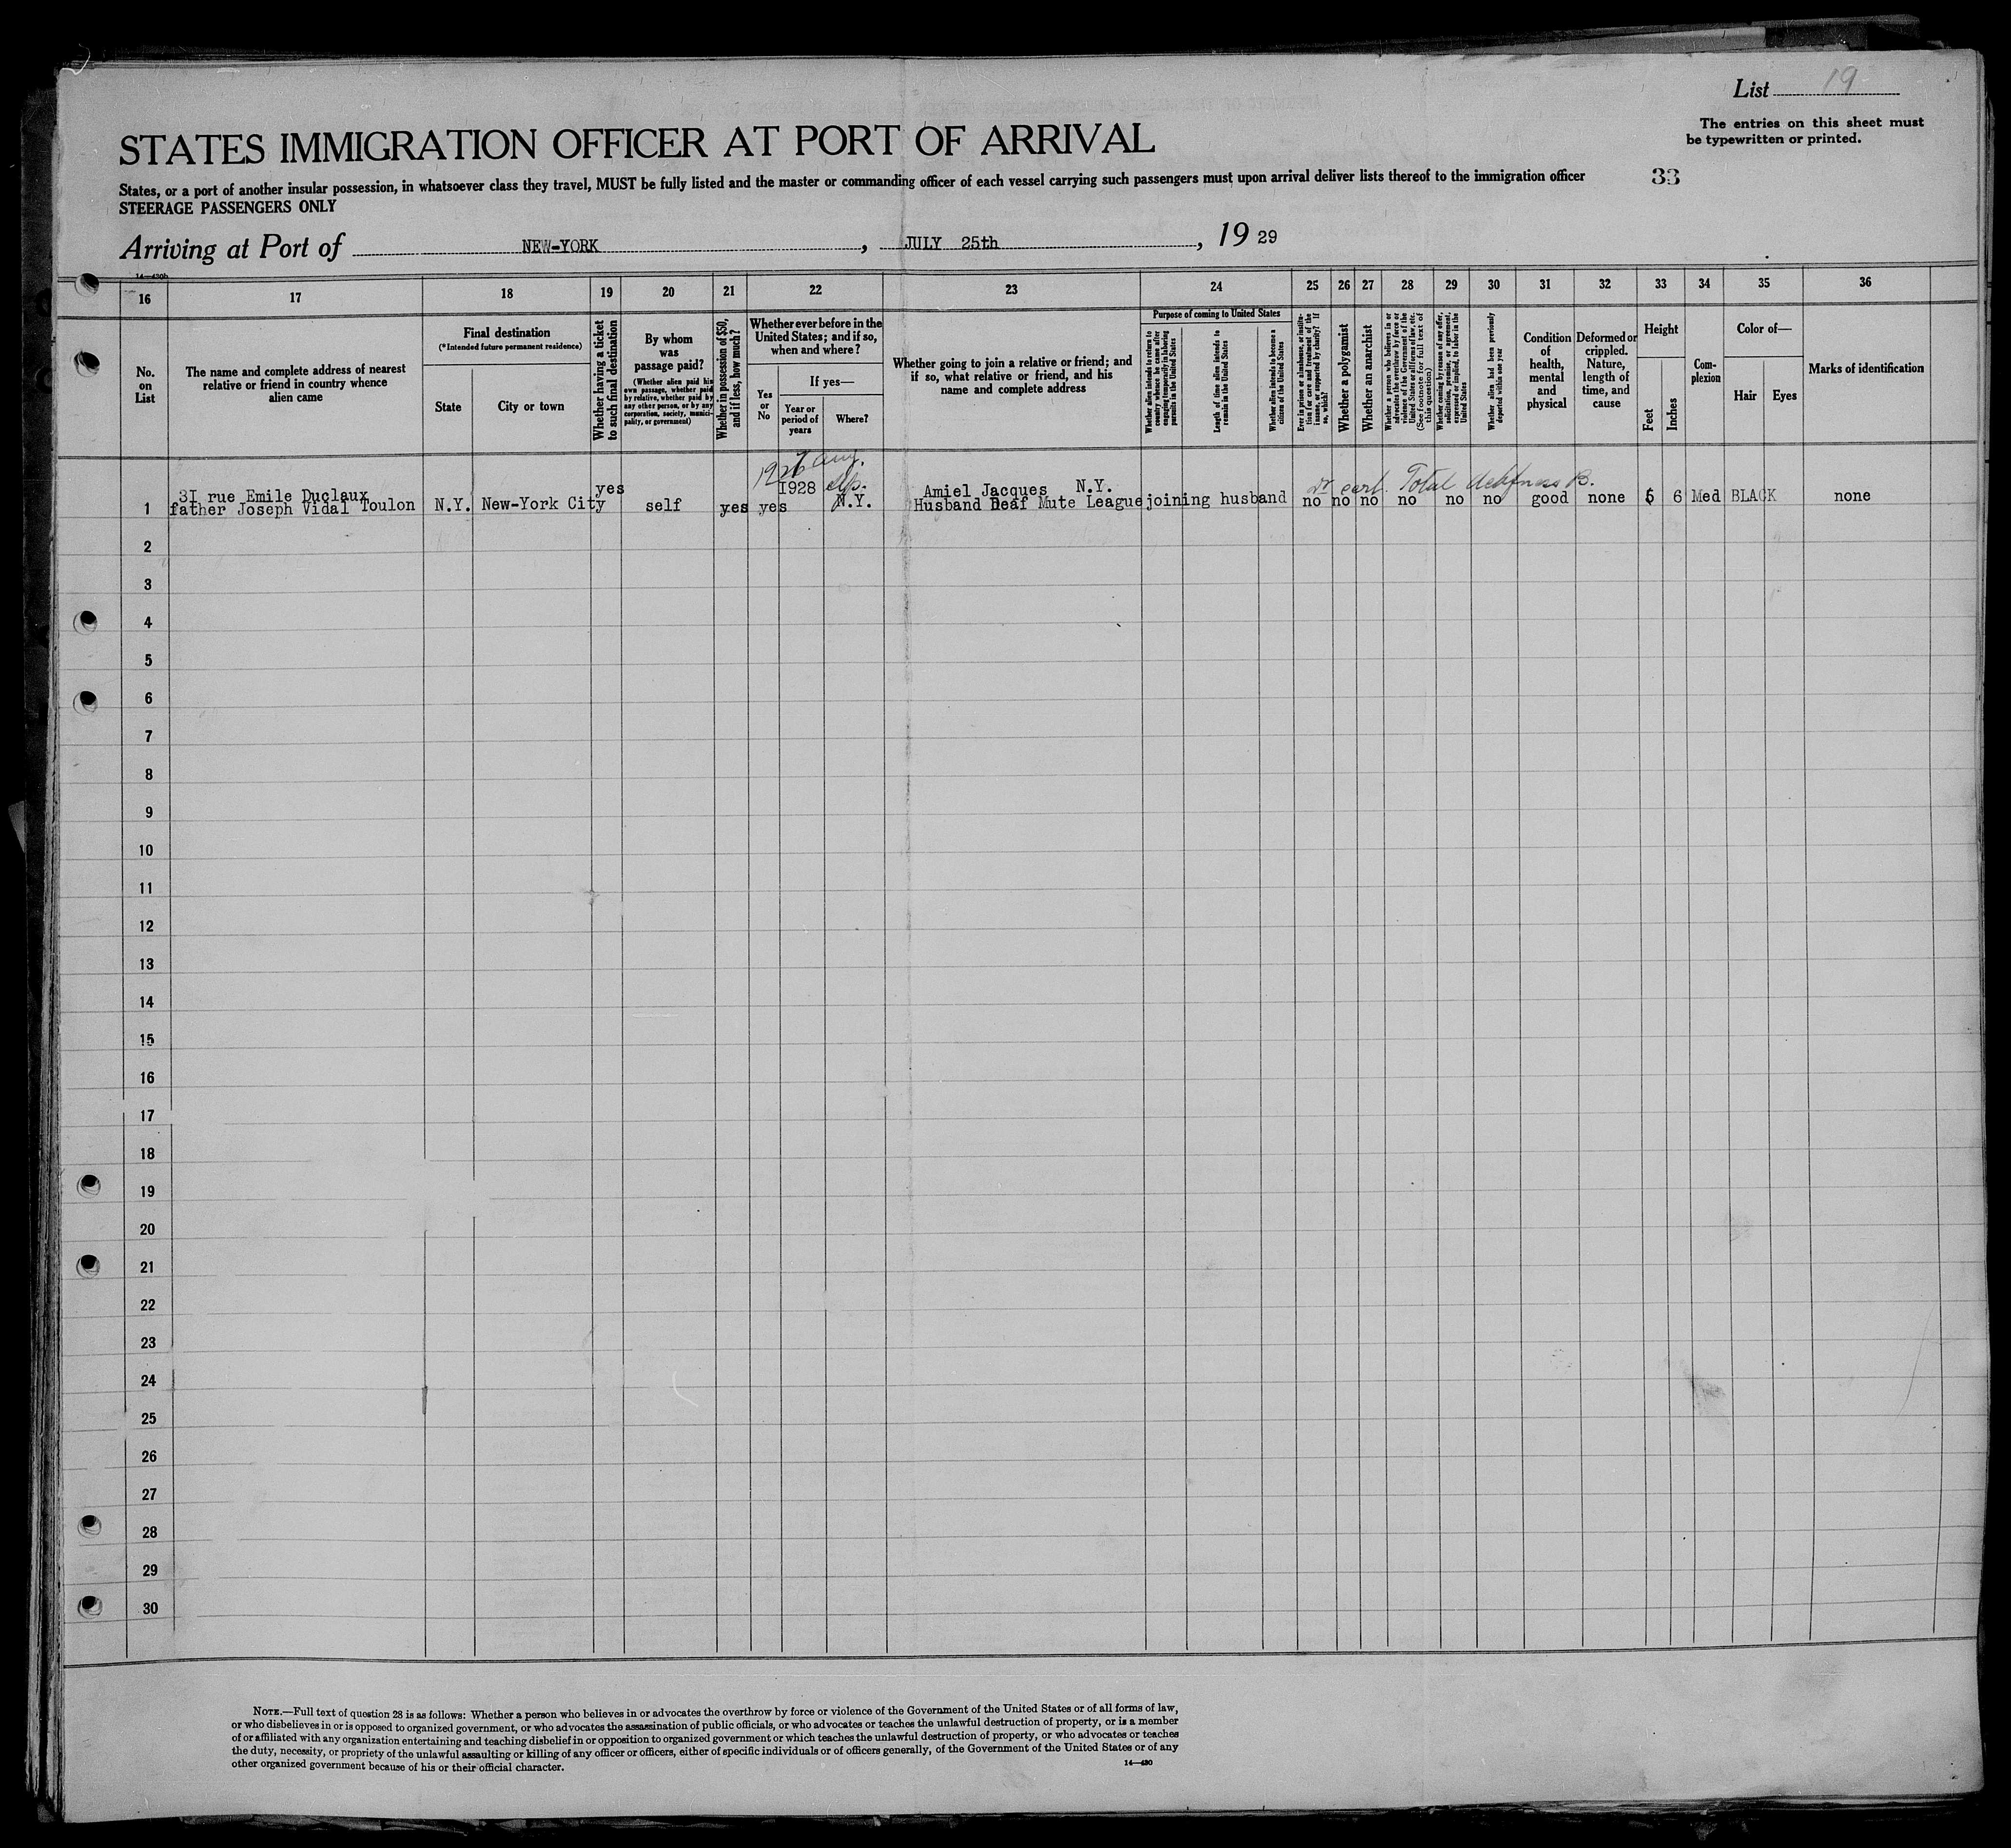 List 19
The entries on this sheet must
be typewritten or printed.
STATES IMMIGRATION OFFICER AT PORT OF ARRIVAL
States, or a port of another insular possession, in whatsoever class they travel, MUST be fully listed and the master or commanding officer of each vessel carrying such passengers must upon arrival deliver lists thereof to the immigration officer
33
STEERAGE PASSENGERS ONLY
Arriving at Port of NEW-YORK, JULY 25th, 19 29
14—430b
16 17 18 19 20 21 22 23 24 25 26 27 28 29 30 31 32 33 34 35 36
No.
on
List
The name and complete address of nearest
relative or friend in country whence
alien came
Final destination
(*Intended future permanent residence)
State
City or town
Whether having a ticket
to such final destination
By whom
was
passage paid?
(Whether alien paid his
own passage, whether paid
by relative, whether paid by
any other person, or by any
corporation, society, munici-
pality, or government)
Whether in possession of $50,
and if less, how much?
Whether ever before in the
United States; and if so,
when and where?
Yes
or
No
If yes—
Year or
period of
years
Where?
Whether going to join a relative or friend; and
if so, what relative or friend, and his
name and complete address
Purpose of coming to United States
Whether alien intends to return to
country whence he came after
engaging temporarily in laboring
pursuits in the United States
Length of time alien intends to
remain in the United States
Whether alien intends to become a
citizen of the United States
Ever in prison or almshouse, or institu-
tion for care and treatment of the
insane, or supported by charity? If
so, which?
Whether a polygamist
Whether an anarchist
Whether a person who believes in or
advocates the overthrow by force or
violence of the Government of the
United States or all forms of law, etc.
(See footnote for full text of
this question)
Whether coming by reason of any offer,
solicitation, promise, or agreement,
expressed or implied, to labor in the
United States
Whether alien had been previously
deported within one year
Condition
of
health,
mental
and
physical
Deformed or
crippled.
Nature,
length of
time, and
cause
Height
Feet
Inches
Com-
plexion
Color of—
Hair
Eyes
Marks of identification
Aug.
31 rue Emile Duclaux yes 1928 Amiel Jacques N.Y. Total deafness B.
1 father Joseph Vidal Toulon N.Y. New-York City self yes yes N.Y. Husband Deaf Mute League joining husband no no no no no no good none 5 6 Med BLACK none
2
3
4
5
6
7
8
9
10
11
12
13
14
15
16
17
18
19
20
21
22
23
24
25
26
27
28
29
30
NOTE.—Full text of question 28 is as follows: Whether a person who believes in or advocates the overthrow by force or violence of the Government of the United States or of all forms of law,
or who disbelieves in or is opposed to organized government, or who advocates the assassination of public officials, or who advocates or teaches the unlawful destruction of property, or is a member
of or affiliated with any organization entertaining and teaching disbelief in or opposition to organized government or which teaches the unlawful destruction of property, or who advocates or teaches
the duty, necessity, or propriety of the unlawful assaulting or killing of any officer or officers, either of specific individuals or of officers generally, of the Government of the United States or of any
other organized government because of his or their official character.
14—430